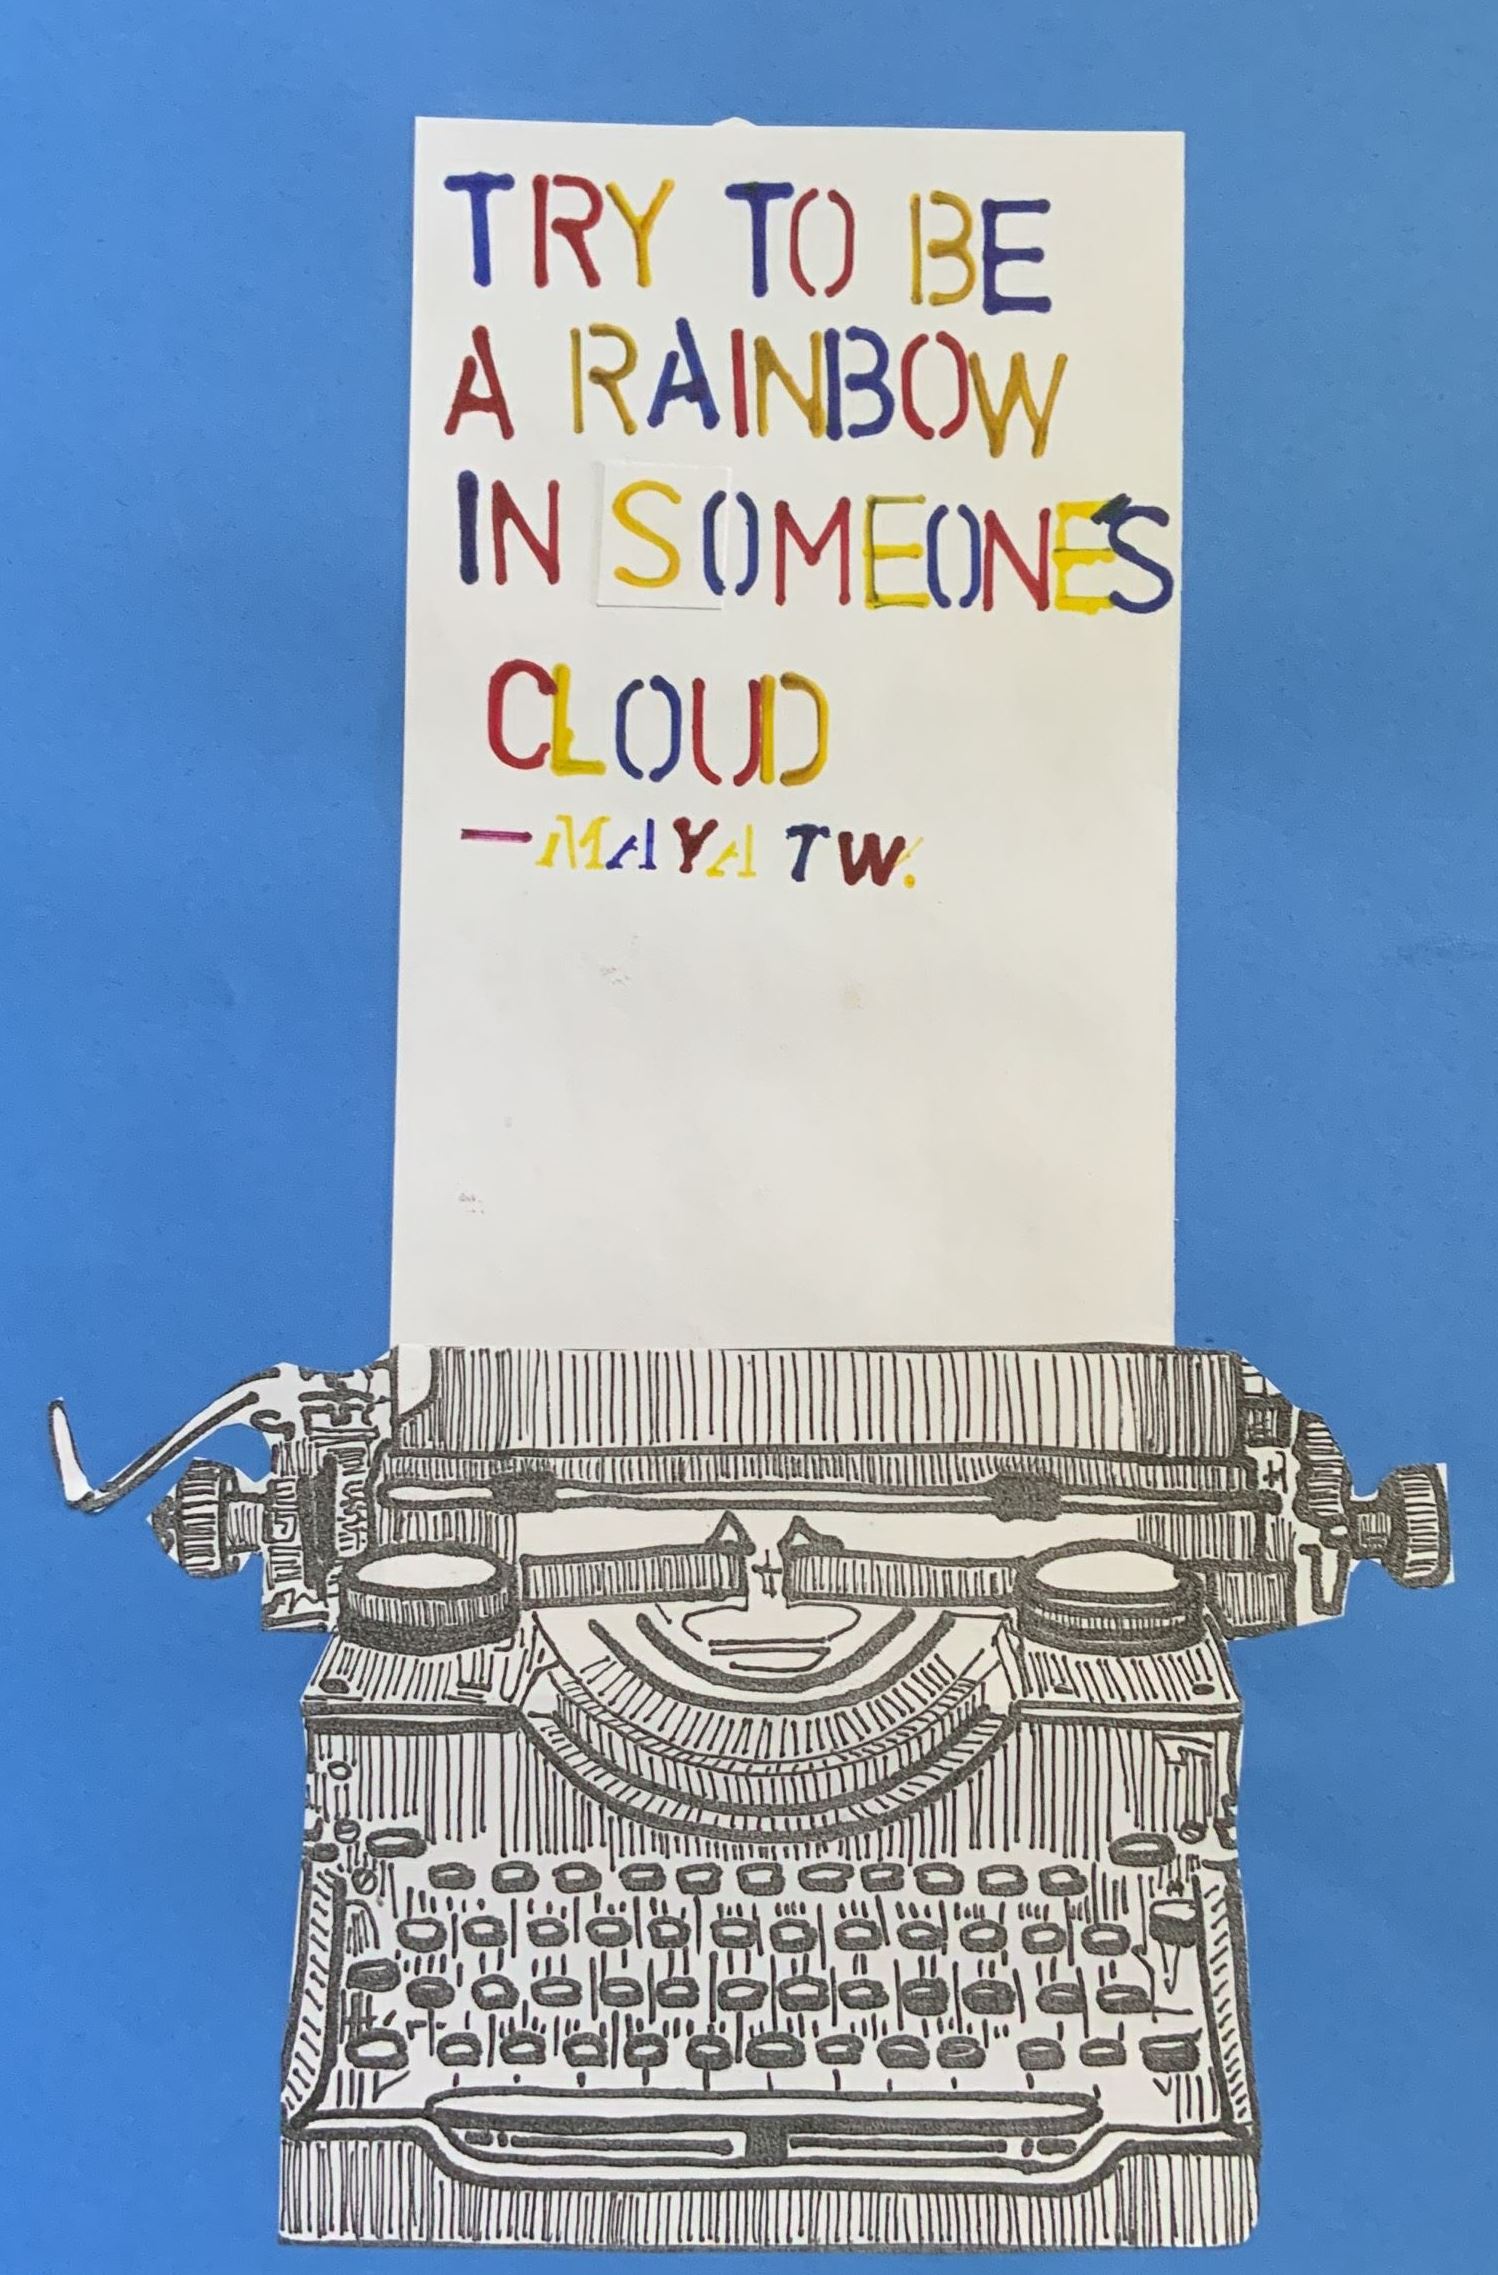 TRY TO BE
A RAINBOW
IN SOMEONE'S
CLOUD
—MAYA TW.